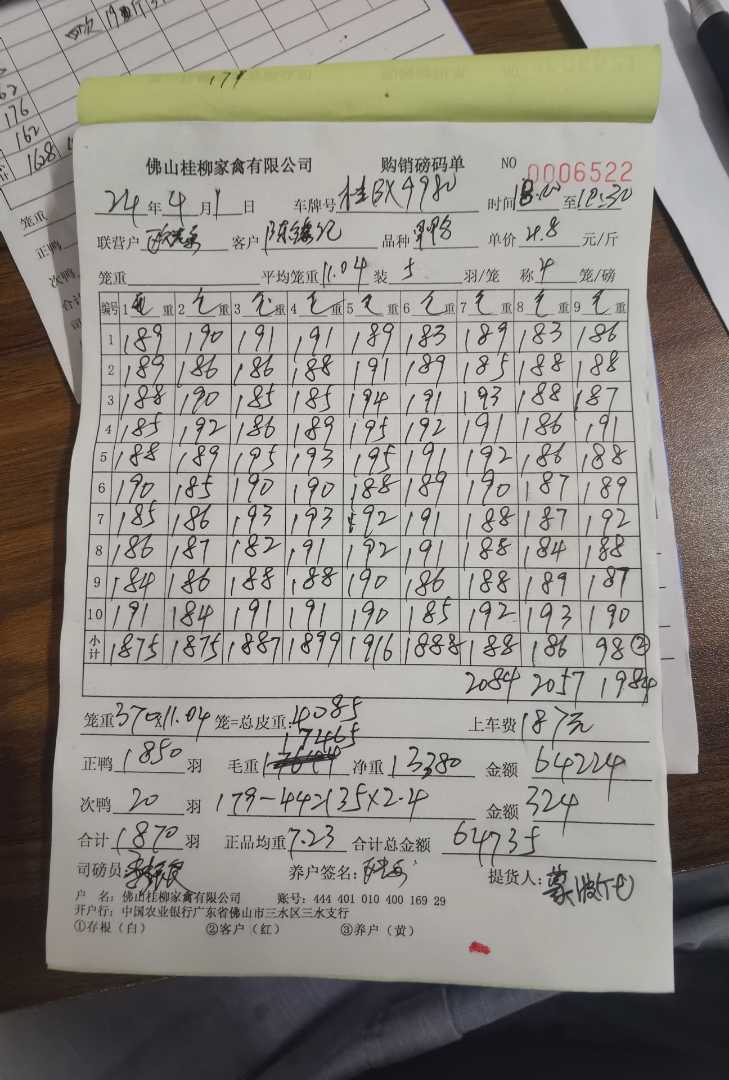 佛山桂柳家禽有限公司 购销磅码单 NO 0006522
24年4月1日 车牌号 桂BX9980 时间 18:00 至 18:30
联营户 客户 品种 单价 4.8 元/斤
笼重 平均笼重 11.04 装 5 羽/笼 称 4 笼/磅
编号 1 毛 重 2 毛 重 3 毛 重 4 毛 重 5 毛 重 6 毛 重 7 毛 重 8 毛 重 9 毛 重
1 189 190 191 191 189 183 189 183 186
2 189 186 186 188 191 189 185 188 188
3 188 190 185 185 194 191 193 188 187
4 185 192 186 189 195 192 191 186 191
5 188 189 195 193 195 191 192 186 188
6 190 185 190 190 188 189 190 187 189
7 185 186 193 193 192 191 188 187 192
8 186 187 182 191 192 191 188 184 188
9 184 186 188 188 190 186 188 189 187
10 191 184 191 191 190 185 192 193 190
小计 1875 1875 1887 1899 1916 1888 188 186 98②
2084 2057 1984
笼重 370x11.04 笼=总皮重: 4085 上车费 187元
正鸭 1850 羽 毛重 17465 净重 13380 金额 64224
次鸭 20 羽 179-44=135×2.4 金额 324
合计 1870 羽 正品均重 7.23 合计总金额 64735
司磅员 养户签名: 提货人:
户 名: 佛山桂柳家禽有限公司 账号: 444 401 010 400 169 29
开户行: 中国农业银行广东省佛山市三水区三水支行
①存根(白) ②客户(红) ③养户(黄)
162
176
162
168
笼重
正鸭
次鸭
合计